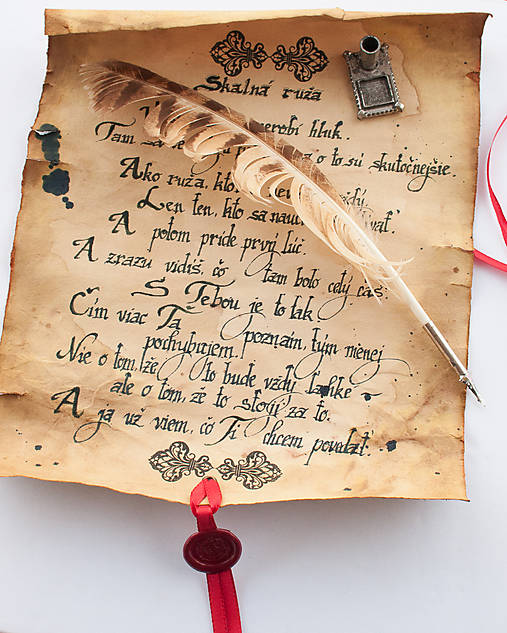 Skalná ruža
nerobí hluk.
Tam sa o to sú skutočnejšie.
Ako ruža, kto
Len ten, kto sa naučí
A potom príde prvý lúč.
A zrazu vidíš, čo tam bolo celý čas.
S Tebou je to tak
Čím viac Ťa poznám, tým menej
pochybujem.
Nie o tom, že to bude vždy ľahké -
ale o tom, že to stojí za to.
A ja už viem, čo Ti chcem povedať.